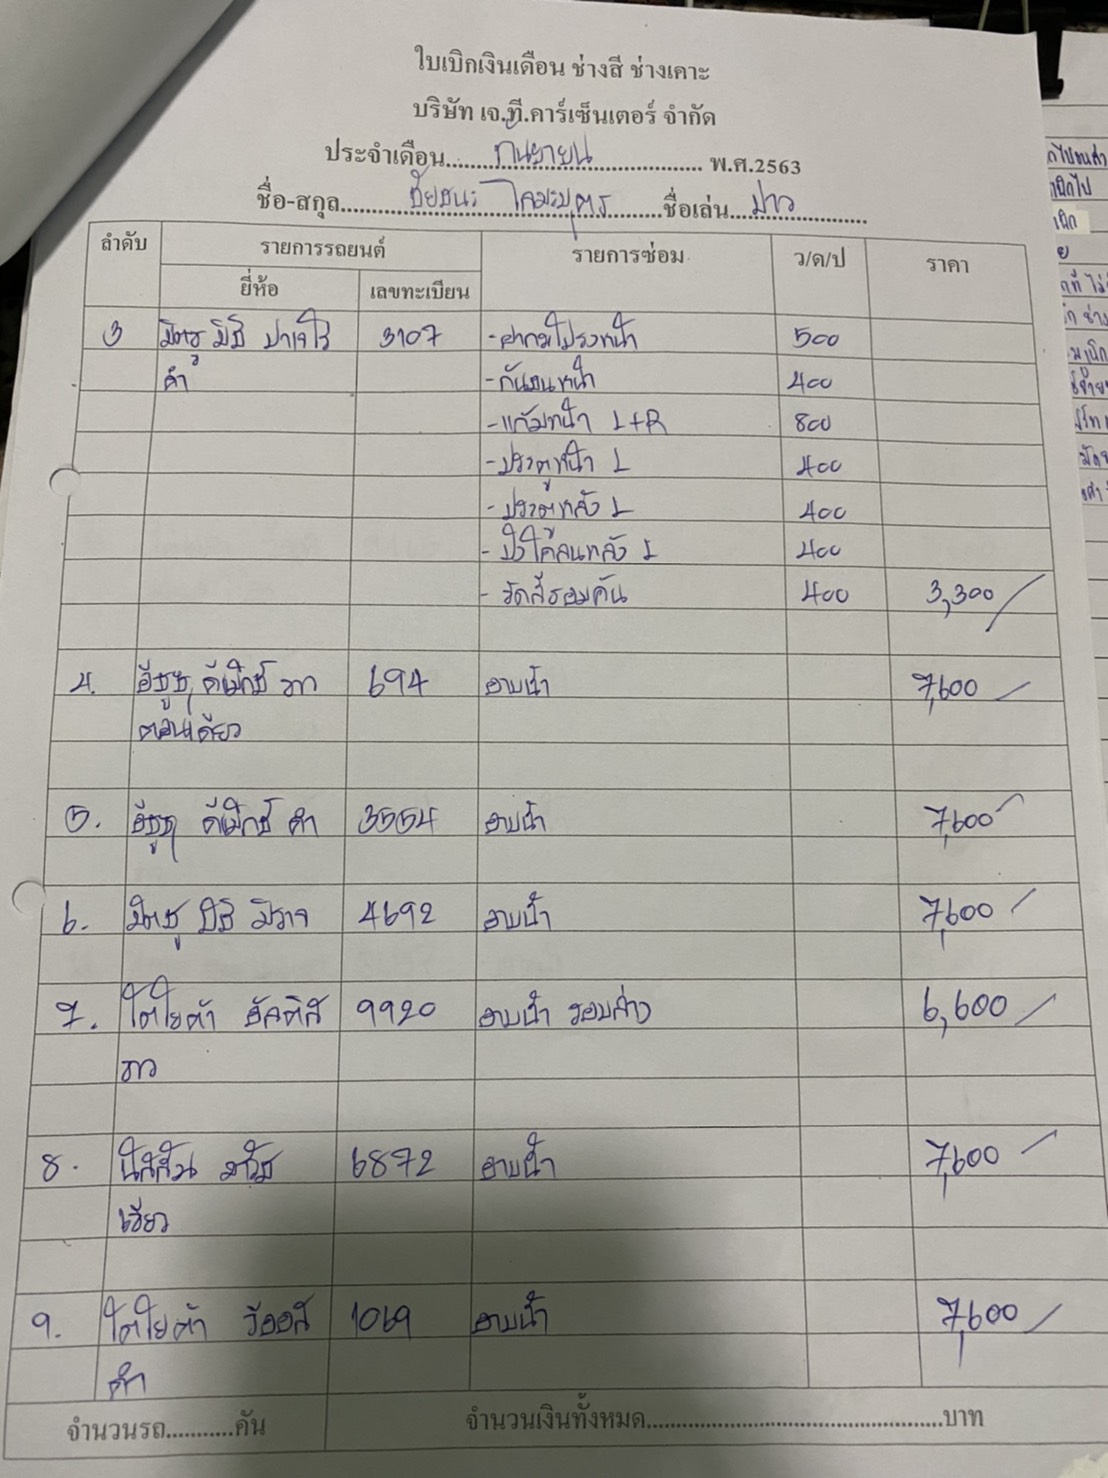 ใบเบิกเงินเดือน ช่างสี ช่างเคาะ
บริษัท เจ.ที.คาร์เซ็นเตอร์ จำกัด
ประจำเดือน กันยายน พ.ศ.2563
ชื่อ-สกุล ชัยชนะ ชื่อเล่น ปาว
ลำดับ รายการรถยนต์ รายการซ่อม ว/ด/ป ราคา
ยี่ห้อ เลขทะเบียน
3 มิตซูมิชิ ปาเจโร่ 3107 -ฝากะโปรงหน้า 500
ดำ -กันชนหน้า 400
-แก้มหน้า L+R 800
-ประตูหน้า L 400
-ประตูหลัง L 400
-บังโคลนหลัง L 400
-ขัดสีรอบคัน 400 3,300
4. อีซูซุ ดีแม็กซ์ ขาว 694 อาบน้ำ 7,600
ตอนเดียว
5. อีซูซุ ดีแม็กซ์ ดำ 3554 อาบน้ำ 7,600
6. มิตซูบิชิ มิราจ 4692 อาบน้ำ 7,600
7. โตโยต้า อัลติส 9920 อาบน้ำ รอบล่าง 6,600
ขาว
8. นิสสัน มาร์ช 6872 อาบน้ำ 7,600
เขียว
9. โตโยต้า วีออส 1069 อาบน้ำ 7,600
ดำ
จำนวนรถ...........คัน จำนวนเงินทั้งหมด..............................................บาท